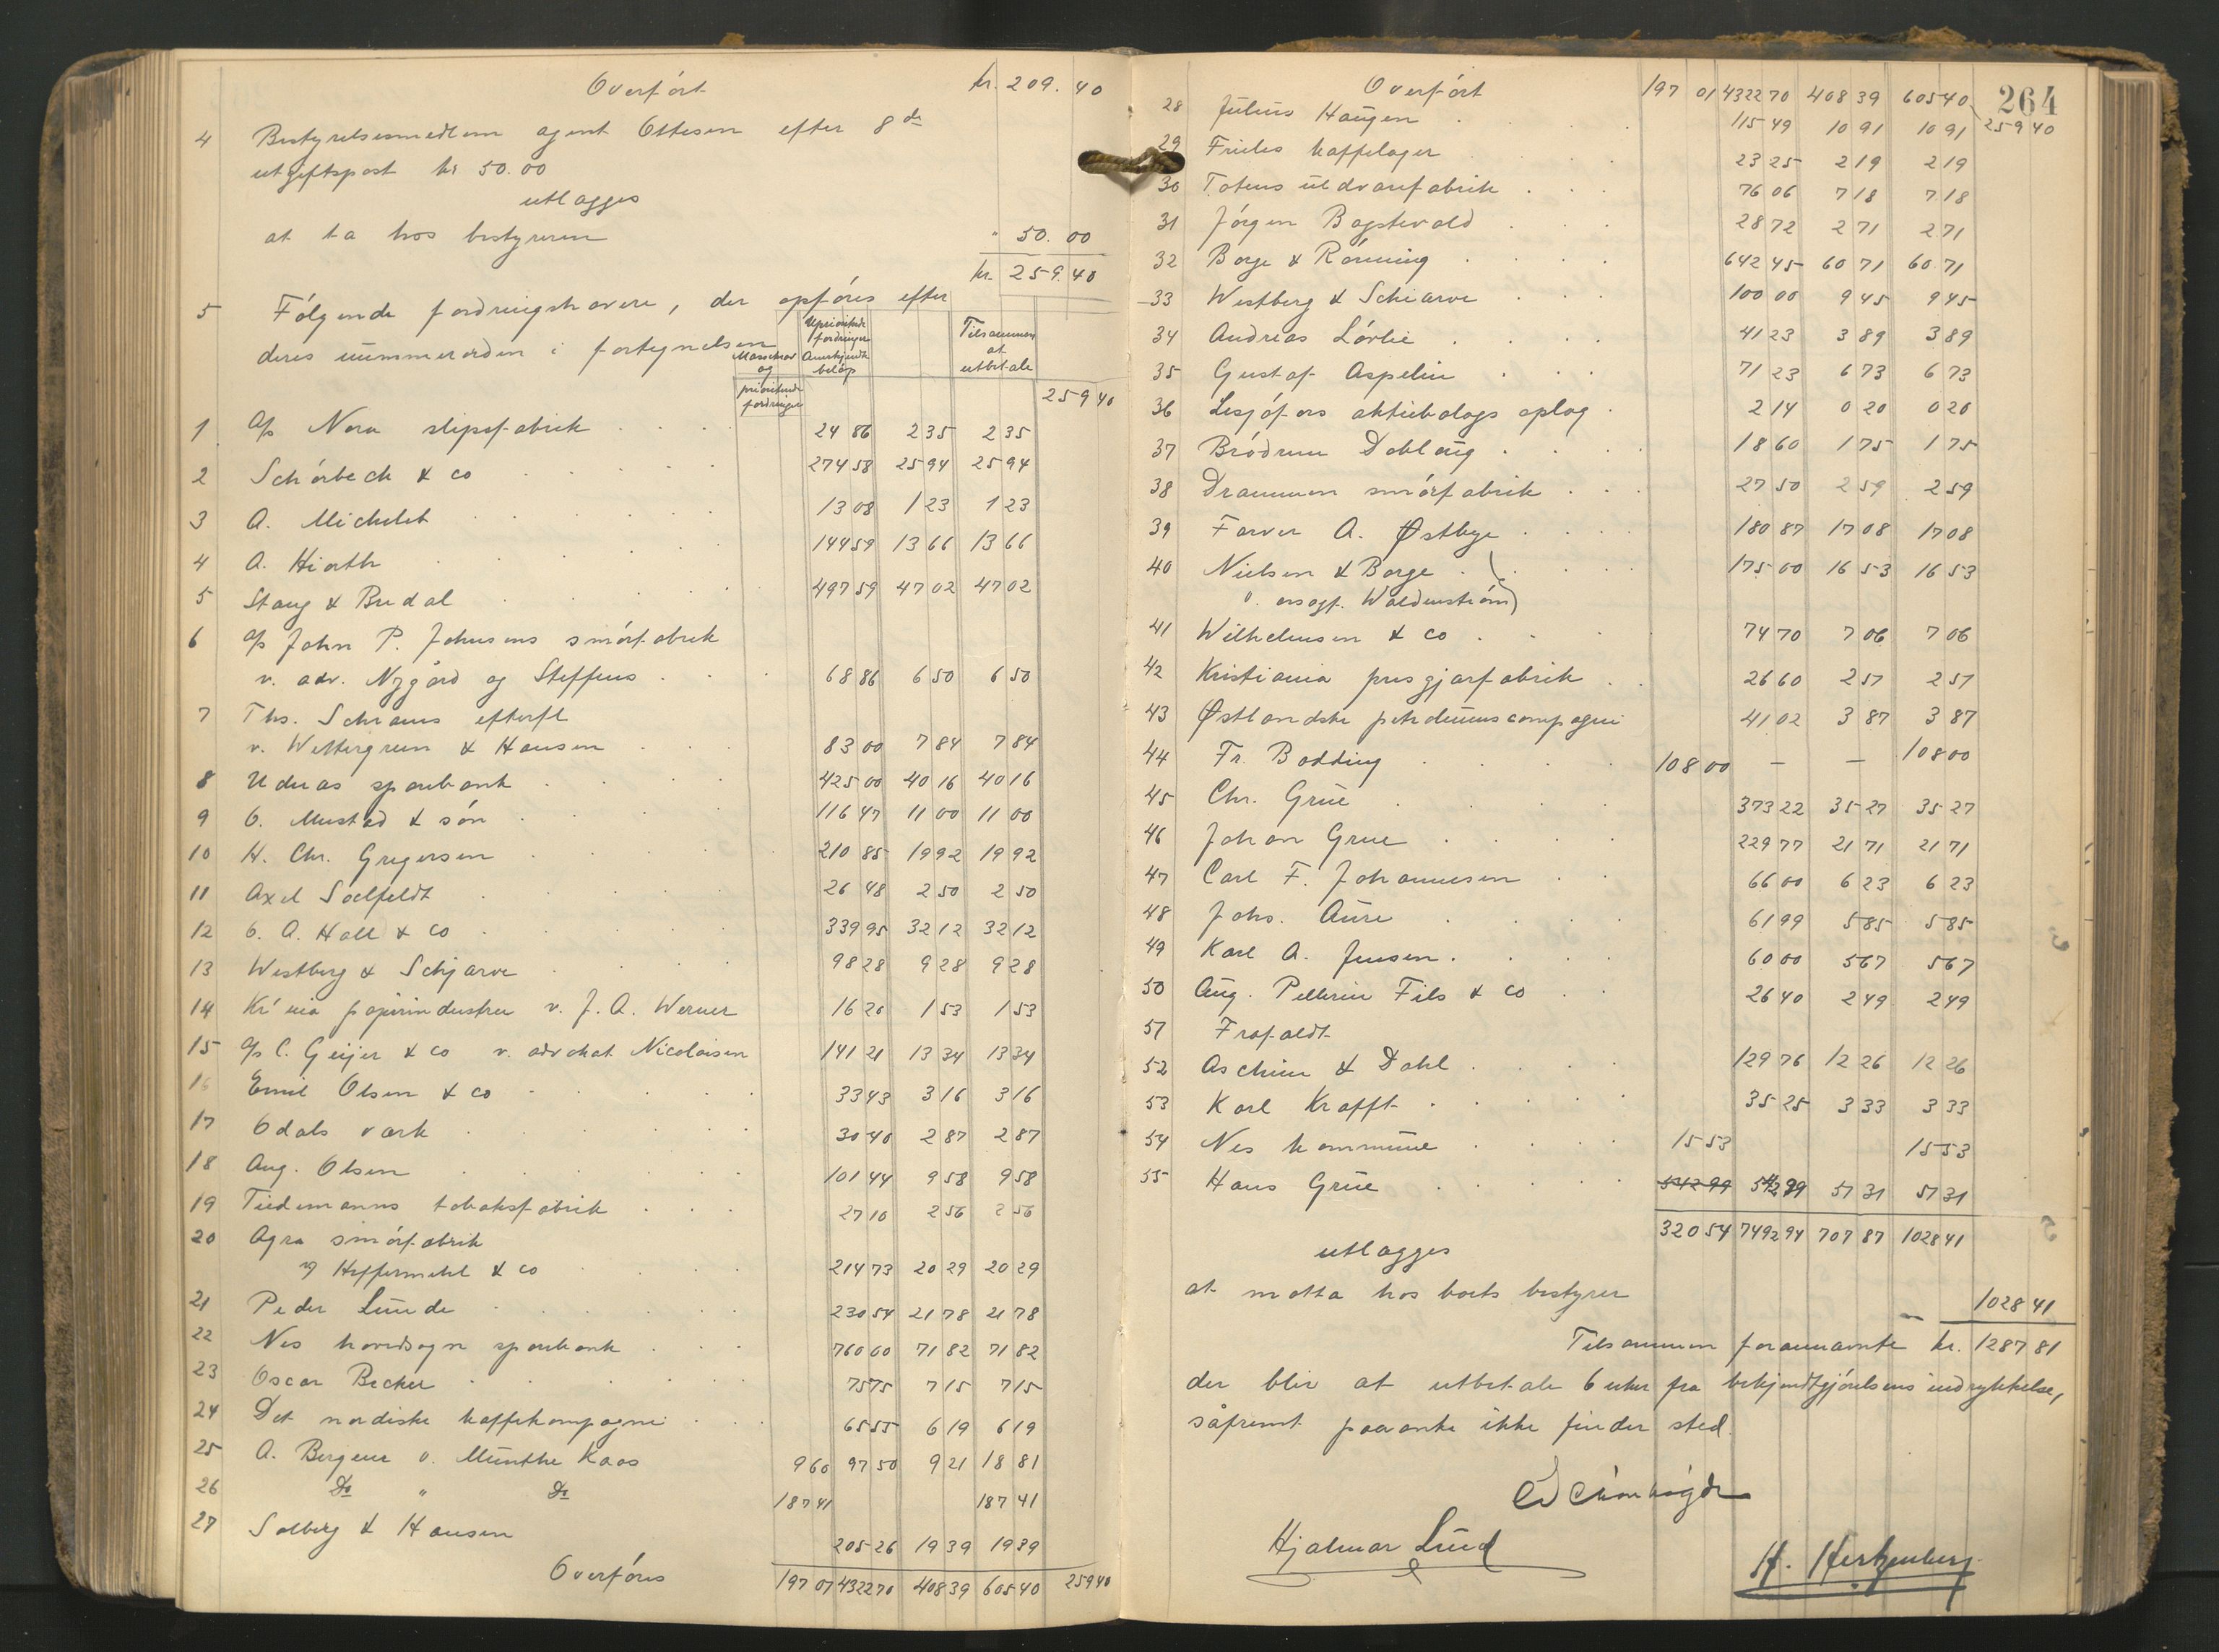 Overført kr. 209. 40
4 Bestyrelsesmedlem agent Ottesen efter 8de
utgiftspost kr 50.00
utlægges
at ta hos bestyreren " 50. 00
kr. 259. 40
5 Følgende fordringshavere, der opføres efter
deres nummerorden i fortegnelsen
Massekrav og prioriterte fordringer
Uprioriterte fordringer Anerkjendt beløp
Tilsammen at utbetale
259 40
1 A/s Nora slipsfabrik 24 86 2 35 2 35
2 Schørbeck & co 274 58 25 94 25 94
3 A. Michelet 13 08 1 23 1 23
4 A. Hiorth 144 59 13 66 13 66
5 Stang & Bredal 497 59 47 02 47 02
6 A/s John P. Johnsens smørfabrik
v. adv. Nygård og Steffens 68 86 6 50 6 50
7 Ths. Schrams efterfl
v. Wettergreen & Hansen 83 00 7 84 7 84
8 Udnæs sparebank 425 00 40 16 40 16
9 O. Mustad & søn 116 47 11 00 11 00
10 H. Chr. Gregersen 210 85 19 92 19 92
11 Axel Soelfeldt 26 48 2 50 2 50
12 O. A. Hall & co 339 95 32 12 32 12
13 Westberg & Schjarve 98 28 9 28 9 28
14 Kr'ania papirindustri v. J. A. Werner 16 20 1 53 1 53
15 A/s C. Geijer & co v. advokat Nicolaisen 141 21 13 34 13 34
16 Emil Olsen & co 33 43 3 16 3 16
17 Odals værk 30 40 2 87 2 87
18 Aug. Olsen 101 44 9 58 9 58
19 Tiedemanns tobaksfabrik 27 10 2 56 2 56
20 Agra smørfabrik
v/ Heffermehl & co 214 73 20 29 20 29
21 Peder Lunde 230 54 21 78 21 78
22 Nes hovedsogn sparebank 760 00 71 82 71 82
23 Oscar Becker 75 75 7 15 7 15
24 Det nordiske kaffekompagni 65 55 6 19 6 19
25 A. Bergene v. Munthe Kaas 9 60 97 50 9 21 18 81
26 Do " Do 187 41 187 41
27 Solberg & Hansen 205 26 19 39 19 39
Overføres 197 01 4322 70 408 39 605 40 259 40
264
Overført 197 01 4322 70 408 39 605 40 259 40
28 Julius Haugen 115 49 10 91 10 91
29 Frieles kaffelager 23 25 2 19 2 19
30 Totens uldvarefabrik 76 06 7 18 7 18
31 Jørgen Bagstevold 28 72 2 71 2 71
32 Borge & Rønning 642 45 60 71 60 71
33 Westberg & Schiarve 100 00 9 45 9 45
34 Andreas Løvlie 41 23 3 89 3 89
35 Gustaf Aspelin 71 23 6 73 6 73
36 Lesjöfors aktiebolags oplag 2 14 0 20 0 20
37 Brødrene Doblaug 18 60 1 75 1 75
38 Drammen smørfabrik 27 50 2 59 2 59
39 Farver A. Østbye 180 87 17 08 17 08
40 Nielsen & Borge 175 00 16 53 16 53
v. orsagf. Waldenstrøm)
41 Wilhelmsen & co 74 70 7 06 7 06
42 Kristiania presgjærfabrik 26 60 2 51 2 51
43 Østlandske petroleumscompagni 41 02 3 87 3 87
44 Fr. Bødding 108 00 — — 108 00
45 Chr. Grue 373 22 35 27 35 27
46 Johan Grue 229 77 21 71 21 71
47 Carl F. Johannesen 66 00 6 23 6 23
48 Johs. Aure 61 99 5 85 5 85
49 Karl A. Jensen 60 00 5 67 5 67
50 Aug. Pellerin Fils & co 26 40 2 49 2 49
51 Frafaldt
52 Aschim & Dahl 129 76 12 26 12 26
53 Karl Krafft 35 25 3 33 3 33
54 Nes kommune 15 53 15 53
55 Hans Grue 542 99 542 99 51 31 51 31
320 54 7492 94 707 87 1028 41
utlægges
at motta hos boets bestyrer 1028 41
Tilsammen forannævnte kr. 1287 81
der blir at utbetale 6 uker fra bekjendtgjørelsens indrykkelse,
såfremt paaanke ikke finder sted.
Hjalmar Lund
H. Hertzenberg